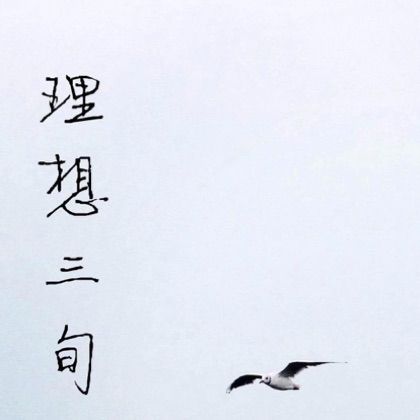 理想三旬